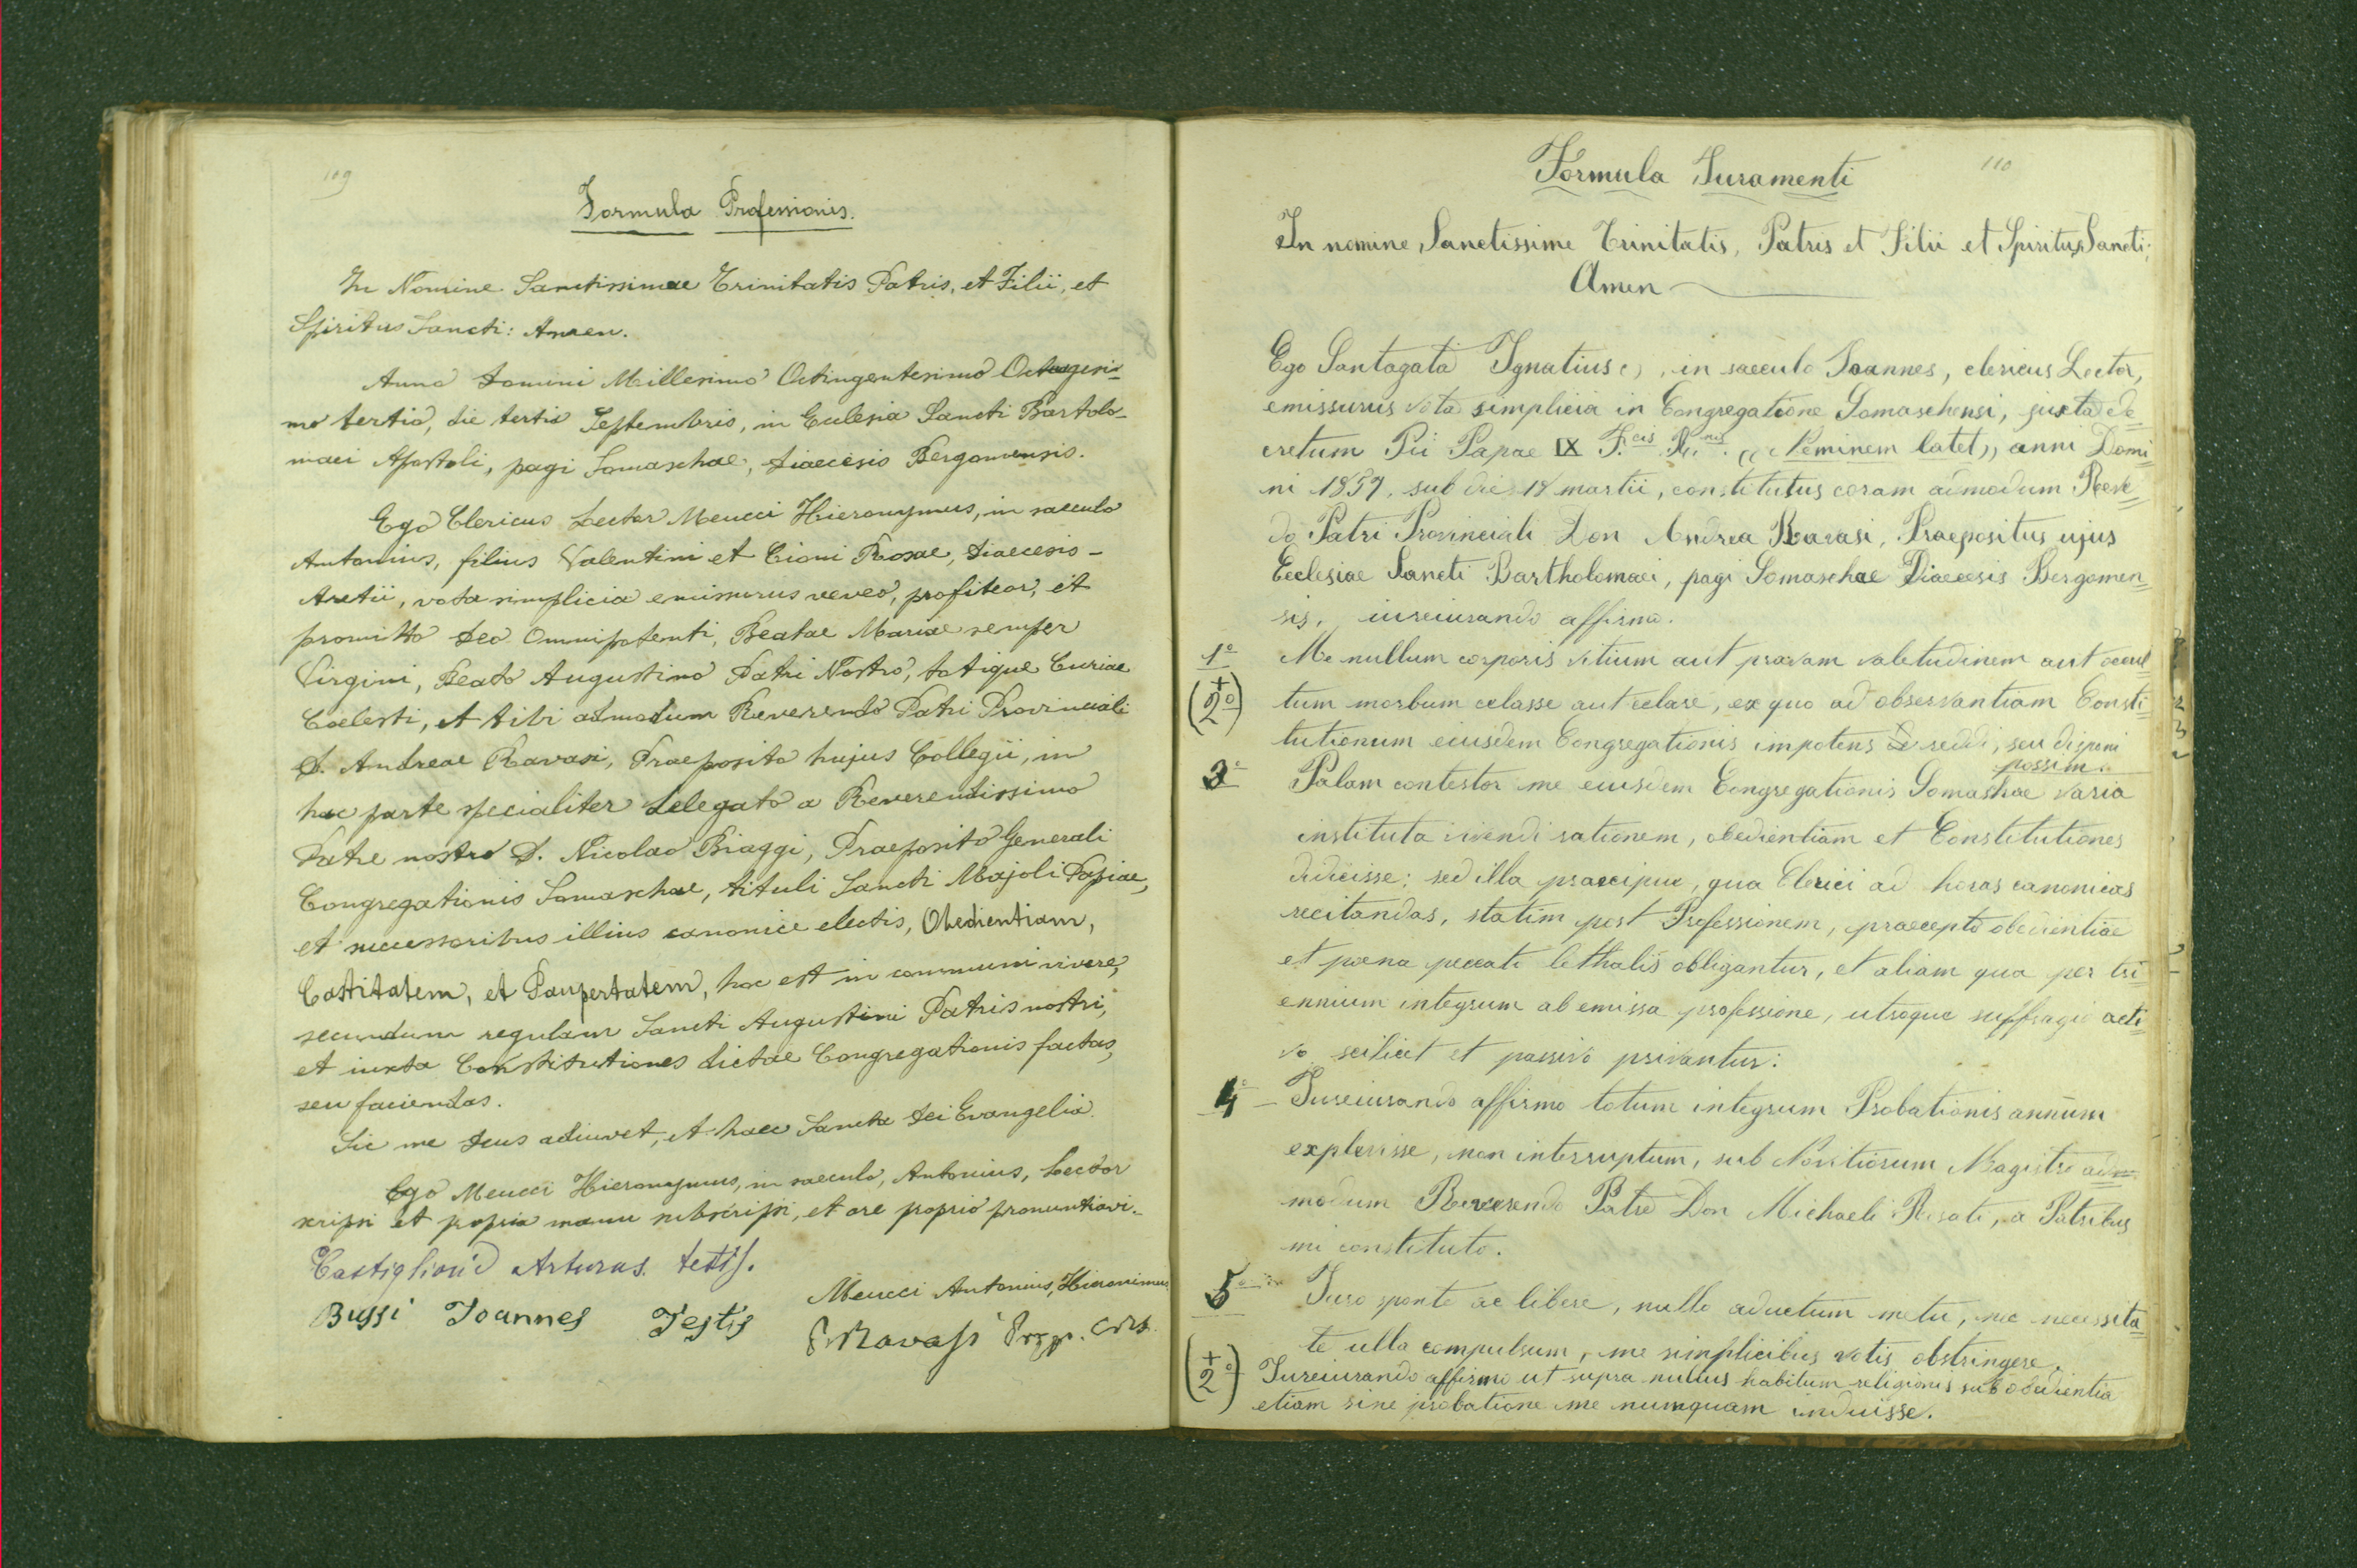 109
Formula Professionis.
In Nomine Sanctissimae Trinitatis Patris, et Filii, et
Spiritus Sancti: Amen.
Anno Domini Millesimo Octingentesimo Octuagesi-
mo tertio, die tertio Septembris, in Eclesia Sancti Bartolo-
maei Apostoli, pagi Somaschae, Diaecesis Bergomensis.
Ego Clericus Lector Meucci Hieronymus, in saeculo
Antonius, filius Valentini et Cioni Rosae, Diaecesis-
Aretii, vota simplicia emissurus voveo, profiteor, et
promitto Deo Omnipotenti, Beatae Mariae semper
Virgini, Beato Augustino Patri Nostro, totique Curiae
Coelesti, et tibi admodum Reverendo Patri Provinciali
D. Andreae Ravasi, Praeposito hujus Collegii, in
hac parte specialiter delegato a Reverendissimo
Patre nostro D. Nicolao Biaggi, Praeposito Generali
Congregationis Somaschae, tituli Sancti Majoli Papiae,
et successoribus illius canonice electis, Obedientiam,
Castitatem, et Paupertatem, hoc est in communi vivere,
secundum regulam Sancti Augustini Patris nostri,
et iuxta Constitutiones dictae Congregationis factas,
seu faciendas.
Sic me Deus adiuvet, et haec Sancta Dei Evangelia.
Ego Meucci Hieronymus, in saeculo, Antonius, Lector
scripsi et propia manu subscripsi, et ore proprio pronuntiavi.
Castiglioni Arturus. testis.
Meucci Antonius, Hieronimus
Bussi Joannes Testis
P. Ravasi Prep. CRS.
110
Formula Juramenti
In nomine Sanctissime Trinitatis, Patris et Filii et Spiritus Sancti;
Amen
Ego Santagata Ignatius, in saeculo Joannes, clericus Lector,
emissurus vota simplicia in Congregatione Somaschensi, juxta de
cretum Pii Papae IX F.cis R.nis. "Neminem latet" anni Domi
ni 1857, sub die 18 martii, constitutus coram admodum Reve
do Patri Provinciali Don Andrea Ravasi, Praepositus ujus
Ecclesiae Sancti Bartholomaei, pagi Somaschae Diaecesis Bergomen
sis, iureiurando affirmo.
1° Me nullum corporis vitium aut pravam valetudinem aut occul
(+2°) tum morbum celasse aut celare, ex quo ad observantiam Consti
tutionum eiusdem Congregationis impotens reddi, seu dispeni
possim.
3° Palam contestor me eiusdem Congregationis Somaschae varia
instituta vivendi rationem, obedientiam et Constitutiones
didicisse: sed illa praecipue, qua Clerici ad horas canonicas
recitandas, statim post Professionem, praecepto obedientiae
et poena peccati lethalis obligantur, et aliam qua per tri
ennium integrum ab emissa professione, utroque suffragio acti
vo scilicet et passivo privantur:
4° Jureiurando affirmo totum integrum Probationis annum
explevisse, non interruptum, sub Novitiorum Magistro ad
modum Reverendo Patre Don Michaeli Rosati, a Patribus
mi constituto.
5° Juro sponte ac libere, nullo aductum metu, nec necessita
te ulla compulsum, me simplicibus votis obstringere.
(+2°) Jureiurando affirmo ut supra nullius habitum religionis sub obedientia
etiam sine probatione me numquam induisse.